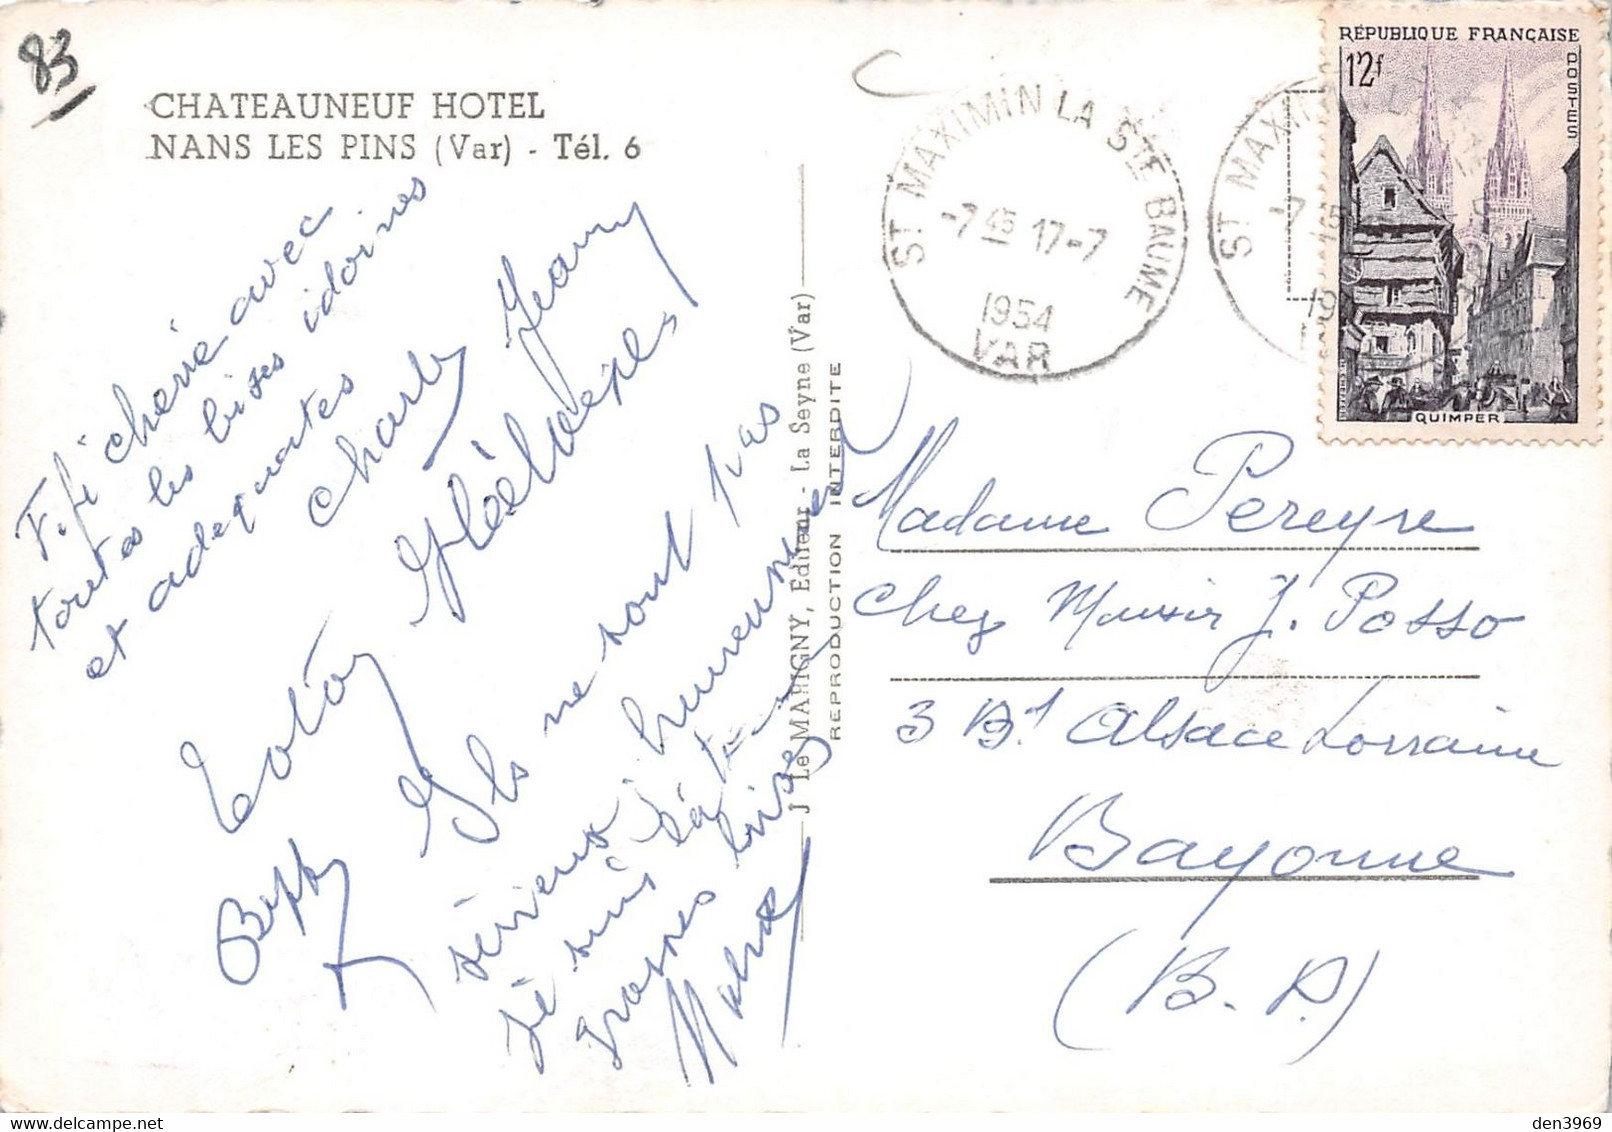 83
CHATEAUNEUF HOTEL
NANS LES PINS (Var) - Tél. 6
Fifi cherie avec
toutes les bises idoines
et adequates
Charly
Totoy
Ils ne sont pas
sérieux, heureusement
je suis là
grosses bises
J Le MARIGNY, Editeur - La Seyne (Var)
REPRODUCTION INTERDITE
ST MAXIMIN LA STE BAUME
-7 45 17-7
1954
VAR
ST MAXIM
RÉPUBLIQUE FRANÇAISE
12f
POSTES
QUIMPER
Madame Pereyre
chez Monsieur J. Posso
3 Bd Alsace Lorraine
Bayonne
(B. P.)
den3969